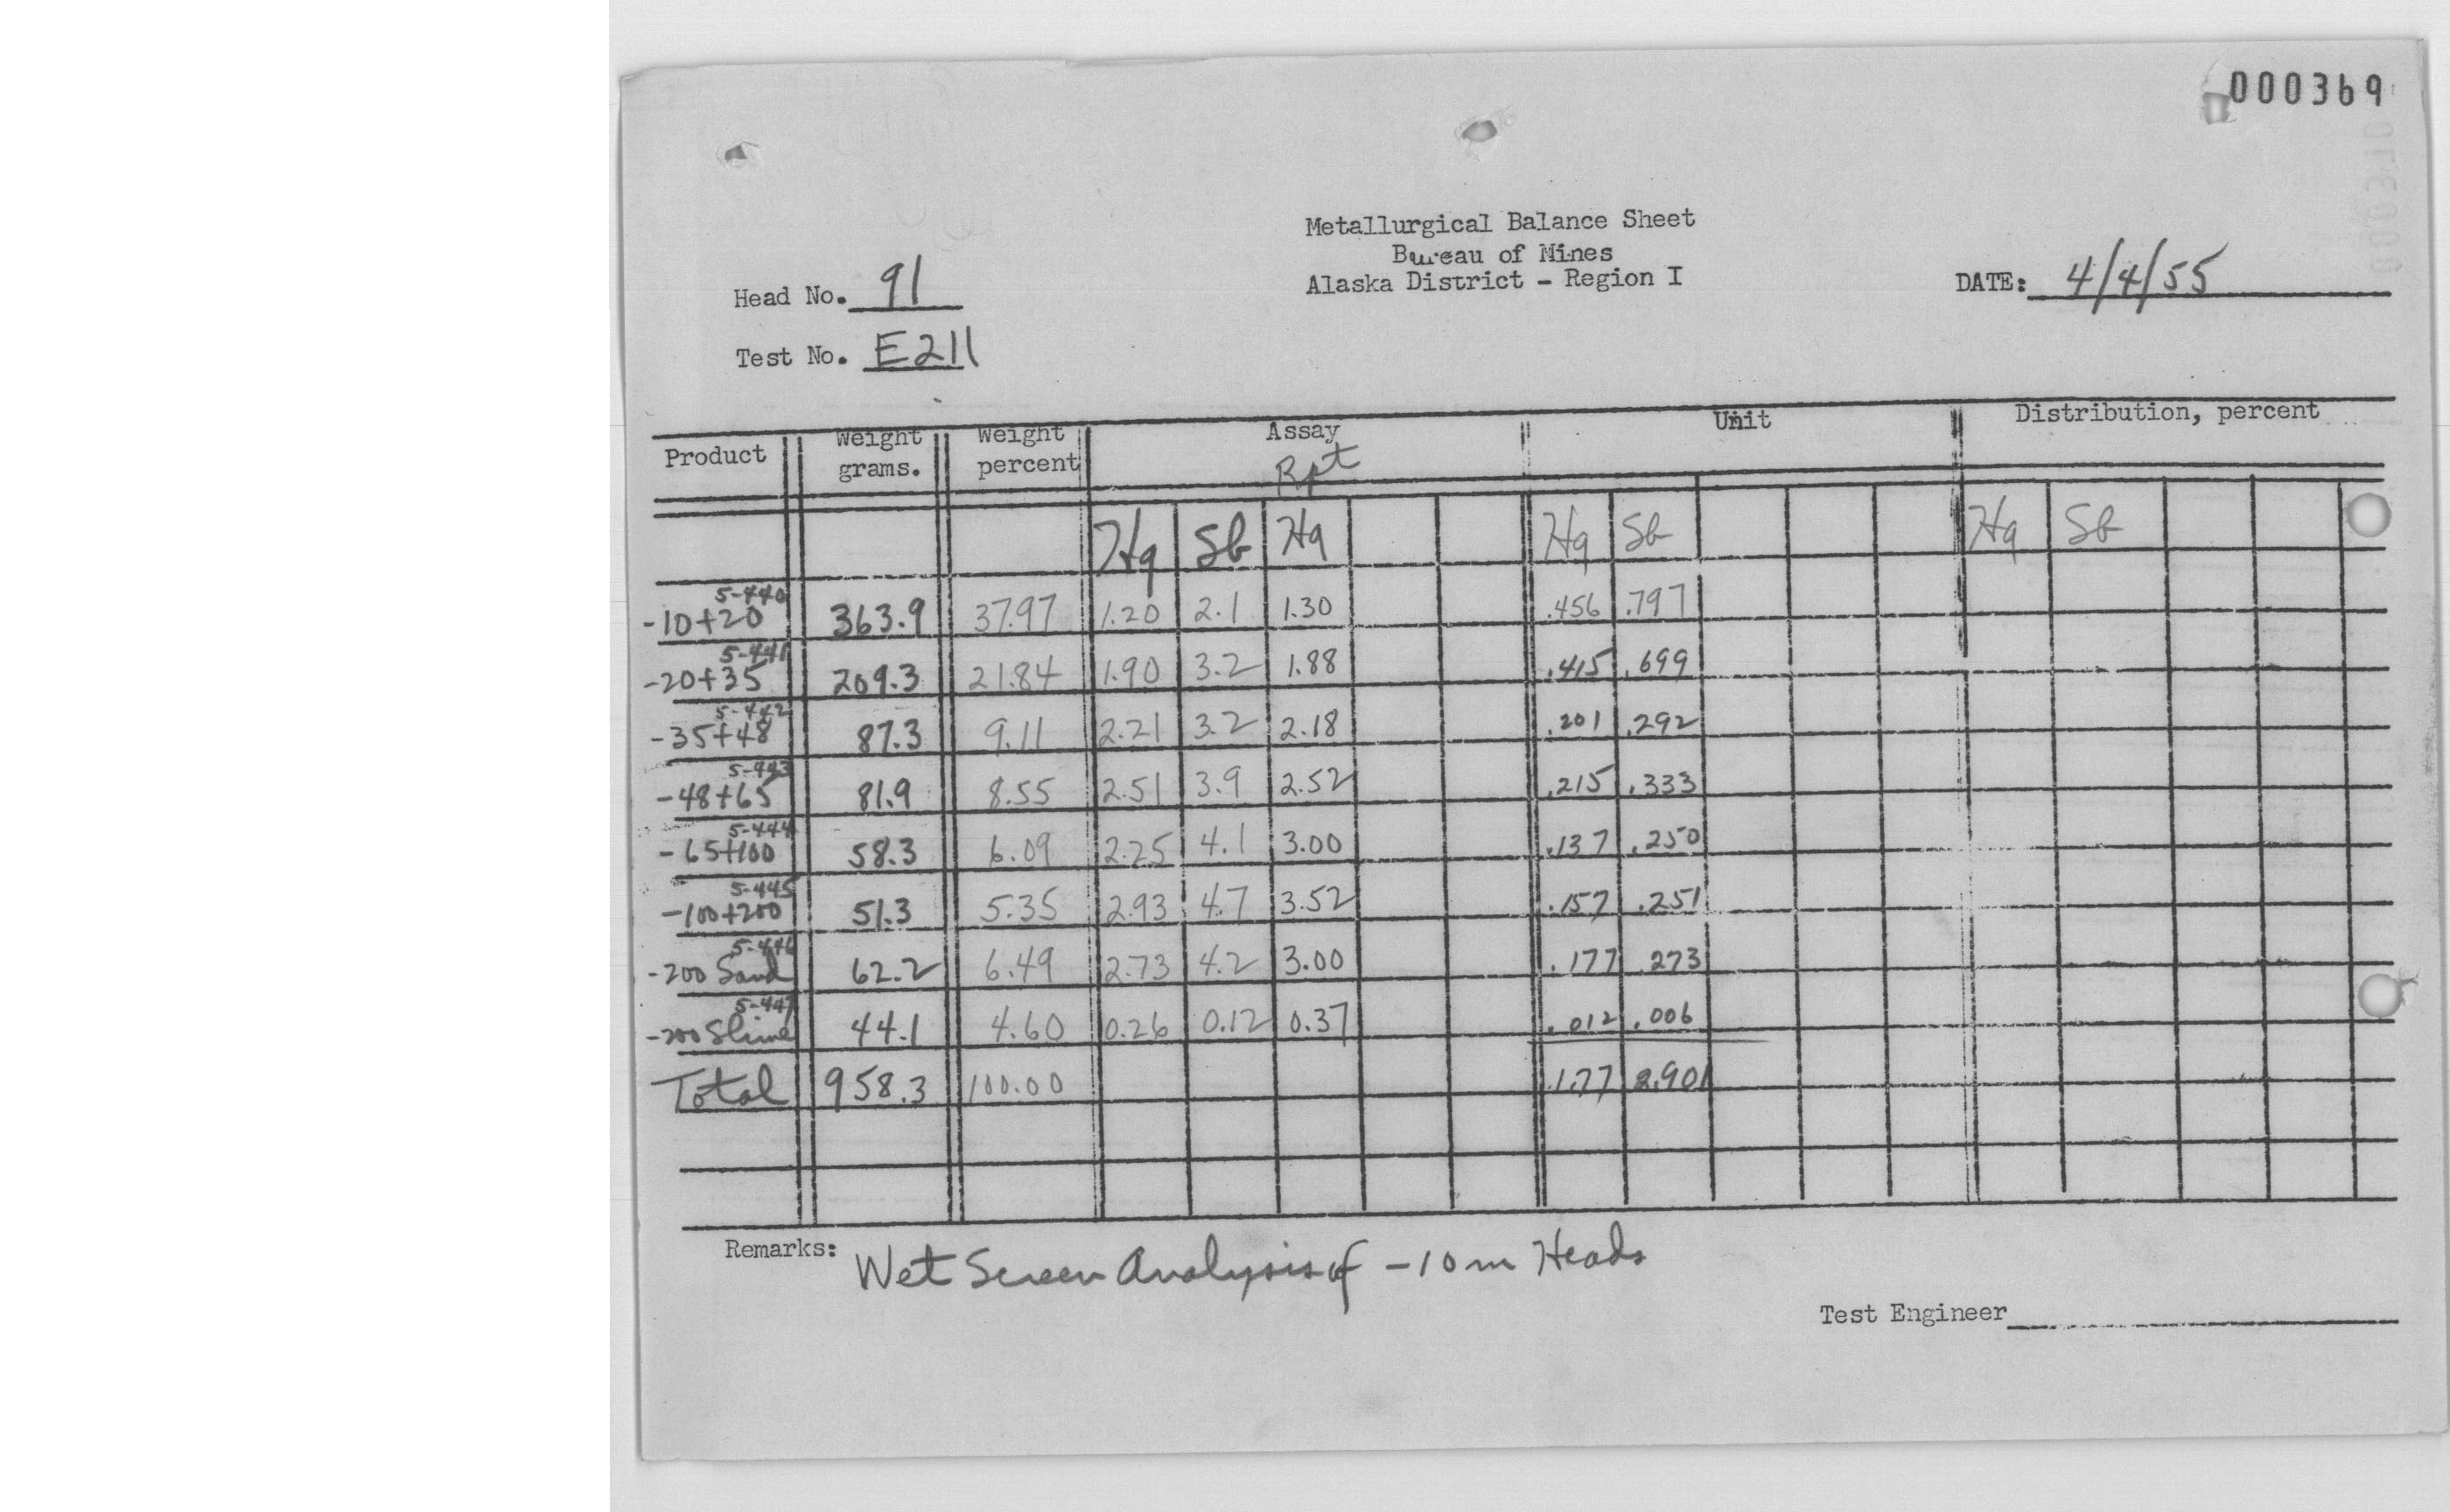 000369
Metallurgical Balance Sheet
Bureau of Mines
Alaska District - Region I
Head No. 91
DATE: 4/4/55
Test No. E211
Product Weight grams. Weight percent Assay Unit Distribution, percent
Rpt
Hg Sb Hg Hg Sb Hg Sb
5-440
-10+20 363.9 37.97 1.20 2.1 1.30 .456 .797
5-441
-20+35 209.3 21.84 1.90 3.2 1.88 .415 .699
5-442
-35+48 87.3 9.11 2.21 3.2 2.18 .201 .292
5-443
-48+65 81.9 8.55 2.51 3.9 2.52 .215 .333
5-444
-65+100 58.3 6.09 2.25 4.1 3.00 .137 .250
5-445
-100+200 51.3 5.35 2.93 4.7 3.52 .157 .251
5-446
-200 Sand 62.2 6.49 2.73 4.2 3.00 .177 .273
5-447
-200 Slime 44.1 4.60 0.26 0.12 0.37 .012 .006
Total 958.3 100.00 1.77 2.901
Remarks: Wet Screen Analysis of -10m Heads
Test Engineer